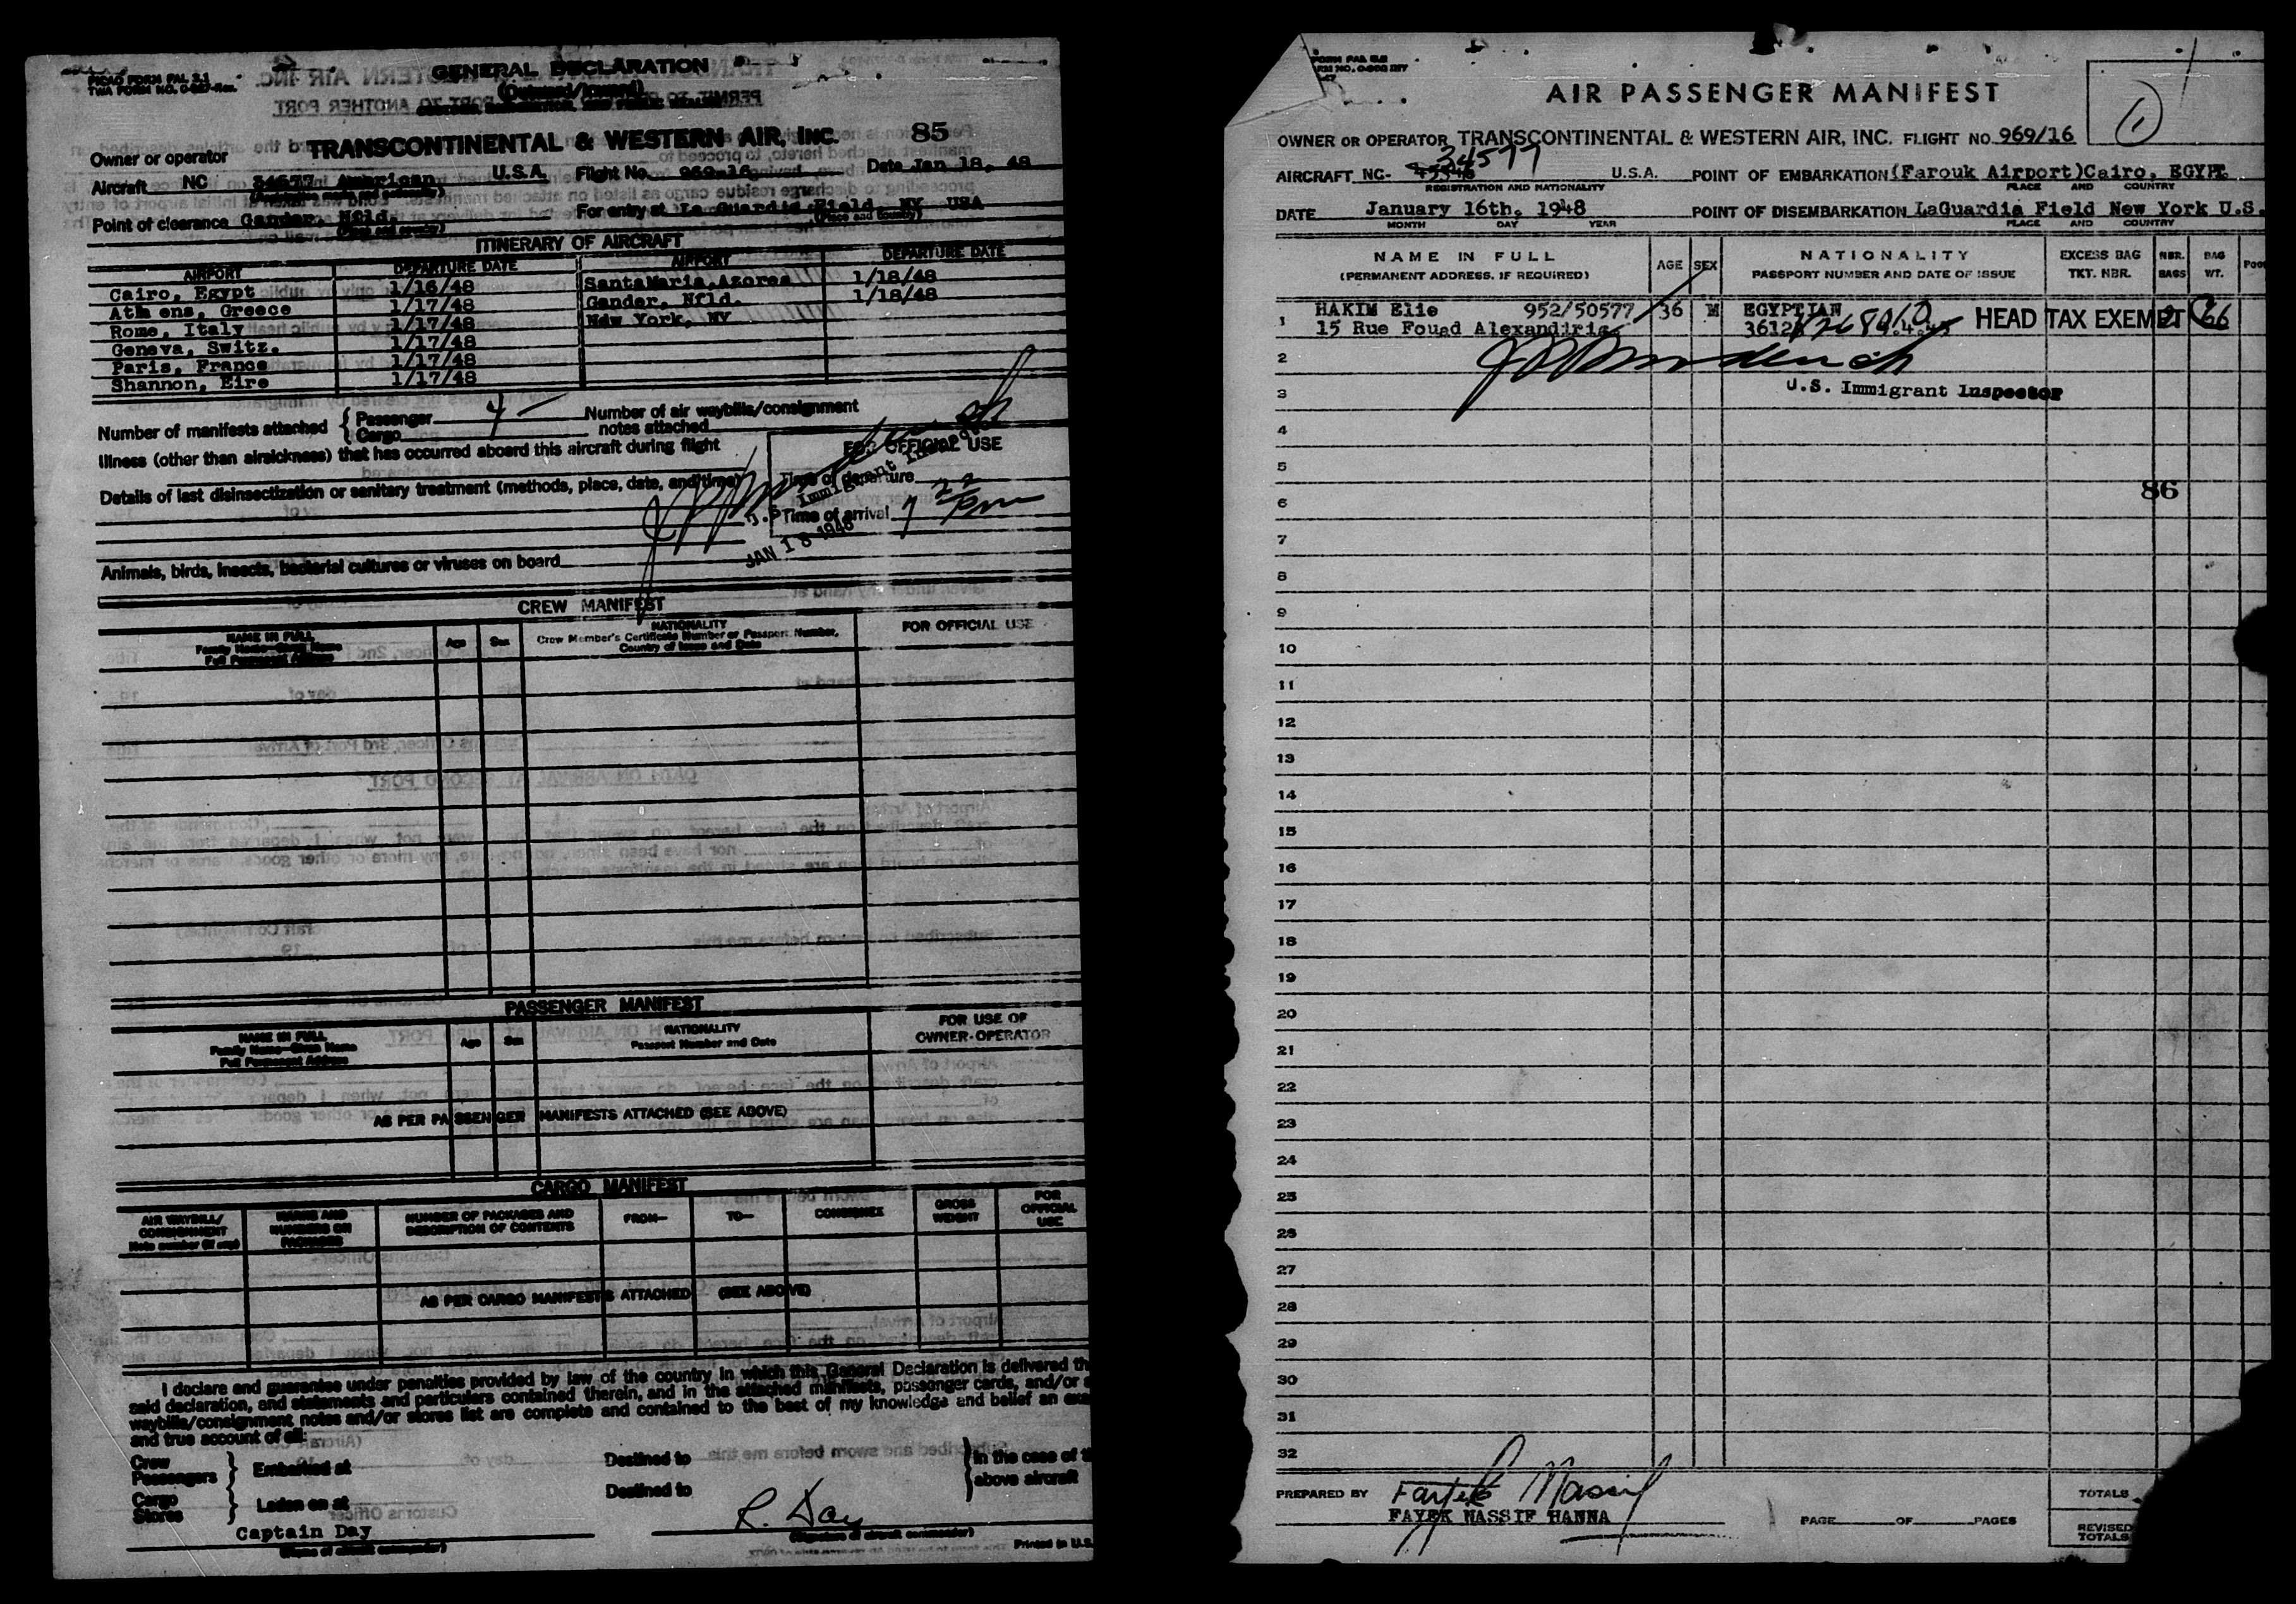 PICAO FORM FAL 2.1
TWA FORM NO. O-887-Rev.
GENERAL DECLARATION
(Outward/Inward)
TRANSCONTINENTAL & WESTERN AIR, INC. 85
Owner or operator
Aircraft NC 34577 American U.S.A. Flight No. 969-16 Date Jan 18, 48
Point of clearance Gander, Nfld. For entry at La Guardia Field, NY USA
(Place and country) (Place and country)
ITINERARY OF AIRCRAFT
AIRPORT DEPARTURE DATE AIRPORT DEPARTURE DATE
Cairo, Egypt 1/16/48 SantaMaria,Azores 1/18/48
Ath ens, Greece 1/17/48 Gander, Nfld. 1/18/48
Rome, Italy 1/17/48 New York, NY
Geneva, Switz. 1/17/48
Paris, France 1/17/48
Shannon, Eire 1/17/48
Number of manifests attached { Passenger 4 Number of air waybills/consignment
Cargo notes attached
Illness (other than airsickness) that has occurred aboard this aircraft during flight
FOR OFFICIAL USE
Details of last disinsectization or sanitary treatment (methods, place, date, and time)
Time of departure
Immigrant
Time of arrival 7 22 Pm
JAN 18 1948
Animals, birds, insects, bacterial cultures or viruses on board
CREW MANIFEST
NAME IN FULL Age Sex NATIONALITY FOR OFFICIAL USE
Family Name—Given Name Crew Member's Certificate Number or Passport Number,
Full Permanent Address Country of Issue and Date
PASSENGER MANIFEST
NAME IN FULL Age Sex NATIONALITY FOR USE OF
Family Name—Given Name Passport Number and Date OWNER-OPERATOR
Full Permanent Address
AS PER PASSENGER MANIFESTS ATTACHED (SEE ABOVE)
CARGO MANIFEST
AIR WAYBILL/ MARKS AND NUMBER OF PACKAGES AND FROM— TO— CONSIGNEE GROSS FOR
CONSIGNMENT NUMBERS ON DESCRIPTION OF CONTENTS WEIGHT OFFICIAL
Note number (if any) PACKAGES USE
AS PER CARGO MANIFESTS ATTACHED (SEE ABOVE)
I declare and guarantee under penalties provided by law of the country in which this General Declaration is delivered
said declaration, and statements and particulars contained therein, and in the attached manifests, passenger cards, and/or
waybills/consignment notes and/or stores list are complete and contained to the best of my knowledge and belief an
and true account of all:
Crew
Passengers } Embarked at Destined to } In the case of
Cargo
Stores } Laden on at Destined to above aircraft
Captain Day R. Day
(Name of aircraft commander) (Signature of aircraft commander)
Printed in U.S.
AIR PASSENGER MANIFEST
1
OWNER OR OPERATOR TRANSCONTINENTAL & WESTERN AIR, INC. FLIGHT NO. 969/16
34577
AIRCRAFT NC- U.S.A. POINT OF EMBARKATION (Farouk Airport)Cairo, EGYPT
REGISTRATION AND NATIONALITY PLACE AND COUNTRY
DATE January 16th, 1948 POINT OF DISEMBARKATION LaGuardia Field New York U.S.
MONTH DAY YEAR PLACE AND COUNTRY
NAME IN FULL AGE SEX NATIONALITY EXCESS BAG NBR. BAG
(PERMANENT ADDRESS, IF REQUIRED) PASSPORT NUMBER AND DATE OF ISSUE TKT. NBR. BAGS WT.
1 HAKIM Elie 952/50577 36 M EGYPTIAN
15 Rue Fouad Alexandiria HEAD TAX EXEMPT 66
2
U.S. Immigrant Inspector
3
4
5
6 86
7
8
9
10
11
12
13
14
15
16
17
18
19
20
21
22
23
24
25
26
27
28
29
30
31
32
PREPARED BY TOTALS
FAYEK NASSIF HANNA PAGE OF PAGES
REVISED
TOTALS